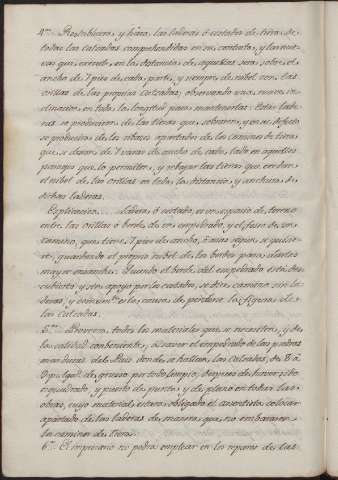 4ª. Restablecerá, y hará, las laderas ó costados de tierra de
todas las calzadas comprehendidas en su contrata, y las nue-
vas que extiende en la distancia de aquellas sera sobre el
ancho de 7 pies de cada parte, y siempre de nibel con las
orillas de las propias calzadas, observando una suave in-
clinacion en toda la longitud para mantenerlas. Estas lade-
ras se produciran de las tierras que sobraren, y en su defecto
se produciran de los rebanes apartados de los caminos de tierra
que, se daran de 7 varas de ancho de cada lado en aquellos
parages que lo permiten, y rebajar las tierras que exceden
el nibel de las orillas en toda la distancia y anchura de
dichas laderas.
Explicacion. Ladera ó costado, es un espacio de terreno
entre las orillas ó borde de un empedrado, y el foso de un
camino, que tiene 7 pies de ancho, ó mas segun se quisie-
re, guardando el propio nibel de los bordes para darles
mayor ensanche. Quando el borde del empedrado está des-
cubierto y sin apoyo por los costados, se dice camino sin la-
deras, y comunmte. es la causa de perderse la figura de
las calzadas.
5ª. Proveera todos los materiales que se necesiten, y de
la calidad combeniente, á saver el empedrado de las piedras
mas duras del Pais donde se hallan las calzadas, de 8 á
9 pulgds. de grueso por todo limpio, despues de haver sido
esquadrado, y puesto de punta, y de plano en todas las
obras, cuyo material estará obligado el asentista colocar
apartado de las laderas de manera que no embarasen
los caminos de tierra.
6ª. El empresario no podra emplear en los reparos de las